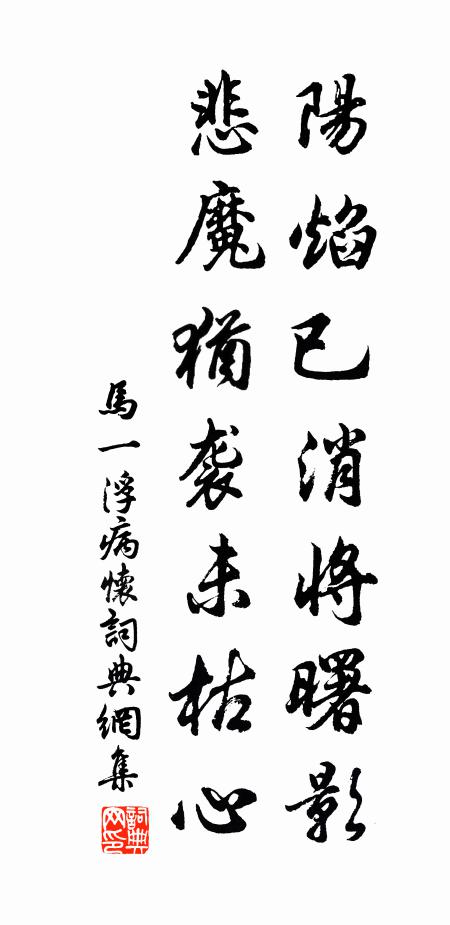 陽焰已消將曙影
悲魔猶袭未枯心
馬一浮病懷詞典網集
詞典
网印